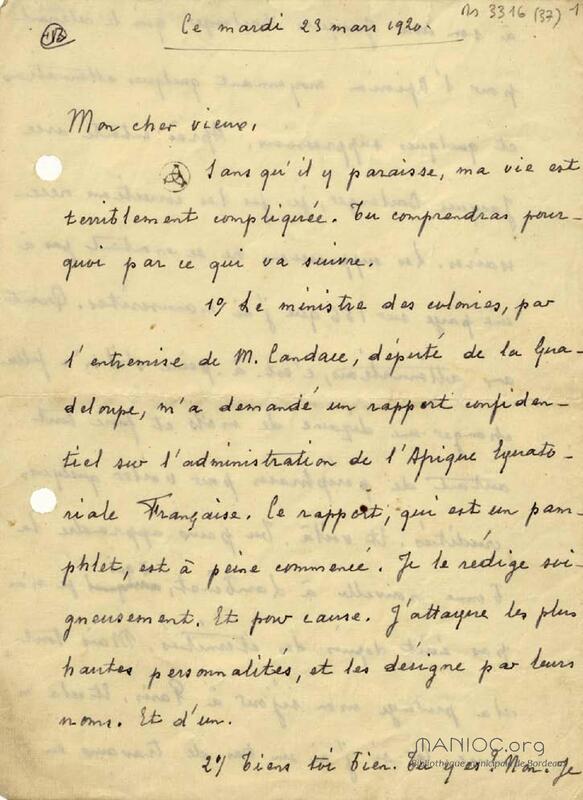 Ms 3316 (37) 1
Ce mardi 23 mars 1920.
Mon cher vieux,
Sans qu'il y paraisse, ma vie est
terriblement compliquée. Tu comprendras pour-
quoi par ce qui va suivre.
1o/ Le ministre des colonies, par
l'entremise de M. Candace, député de la Gua-
deloupe, m'a demandé un rapport confiden-
tiel sur l'administration de l'Afrique Equato-
riale Française. Ce rapport, qui est un pam-
phlet, est à peine commencé. Je le rédige soi-
gneusement. Et pour cause. J'attaque les plus
hautes personnalités, et les désigne par leurs
noms. Et d'un.
2o/ Tiens toi bien. Tu y es ? Non. Je
MANIOC.org
Bibliothèque municipale de Bordeaux